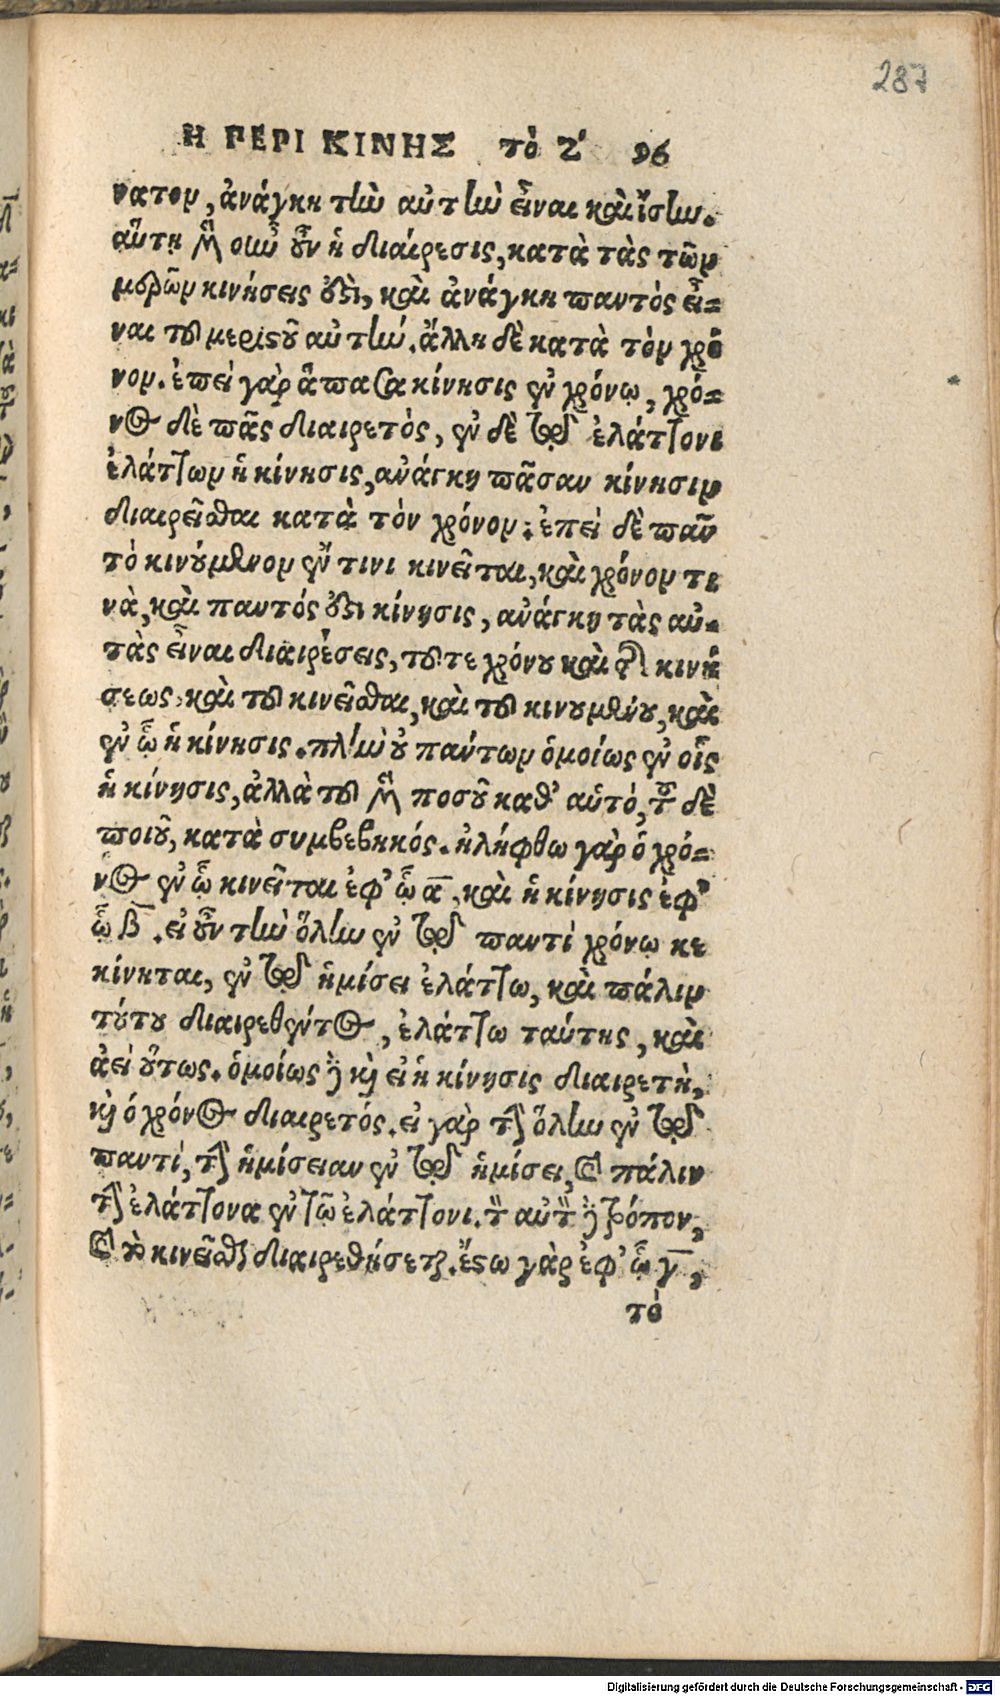 287
Η ΠΕΡΙ ΚΙΝΗΣ τὸ Ζ' 96
νατον, ἀνάγκη τὴν αὐτὴν εἶναι καὶ ἴσην.
αὕτη μὲν οὖν ἡ διαίρεσις, κατὰ τὰς τῶν
μερῶν κινήσεις ἐστὶ, καὶ ἀνάγκη παντὸς εἶ=
ναι τοῦ μεριστοῦ αὐτήν. ἄλλη δὲ κατὰ τὸν χρό
νον. ἐπεὶ γὰρ ἅπασα κίνησις ἐν χρόνῳ, χρό=
νος δὲ πᾶς διαιρετὸς, ἐν δὲ τῷ ἐλάττονι
ἐλάττων ἡ κίνησις, ἀνάγκη πᾶσαν κίνησιν
διαιρεῖσθαι κατὰ τὸν χρόνον. ἐπεὶ δὲ πᾶν
τὸ κινούμενον ἔν τινι κινεῖται, καὶ χρόνον τι
νὰ, καὶ παντός ἐστι κίνησις, ἀνάγκη τὰς αὐ=
τὰς εἶναι διαιρέσεις, τοῦ τε χρόνου καὶ τῆς κινή
σεως καὶ τοῦ κινεῖσθαι, καὶ τοῦ κινουμένου, καὶ
ἐν ᾧ ἡ κίνησις. πλὴν οὐ πάντων ὁμοίως ἐν οἷς
ἡ κίνησις, ἀλλὰ τοῦ μὲν ποσοῦ καθ' αὑτό, τοῦ δὲ
ποιοῦ, κατὰ συμβεβηκός. ἠλήφθω γὰρ ὁ χρό=
νος ἐν ᾧ κινεῖται ἐφ' ᾧ α, καὶ ἡ κίνησις ἐφ'
ᾧ β. εἰ οὖν τὴν ὅλην ἐν τῷ παντὶ χρόνῳ κε
κίνηται, ἐν τῷ ἡμίσει ἐλάττω, καὶ πάλιν
τούτου διαιρεθέντος, ἐλάττω ταύτης, καὶ
ἀεὶ οὕτως. ὁμοίως δὲ καὶ εἰ ἡ κίνησις διαιρετὴ,
καὶ ὁ χρόνος διαιρετός. εἰ γὰρ τὴν ὅλην ἐν τῷ
παντί, τὴν ἡμίσειαν ἐν τῷ ἡμίσει, καὶ πάλιν
τὴν ἐλάττονα ἐν τῷ ἐλάττονι. τὸν αὐτὸν δὲ τρόπον,
καὶ τὸ κινεῖσθαι διαιρεθήσεται. ἔστω γὰρ ἐφ' ᾧ γ,
τὸ
Digitalisierung gefördert durch die Deutsche Forschungsgemeinschaft - DFG